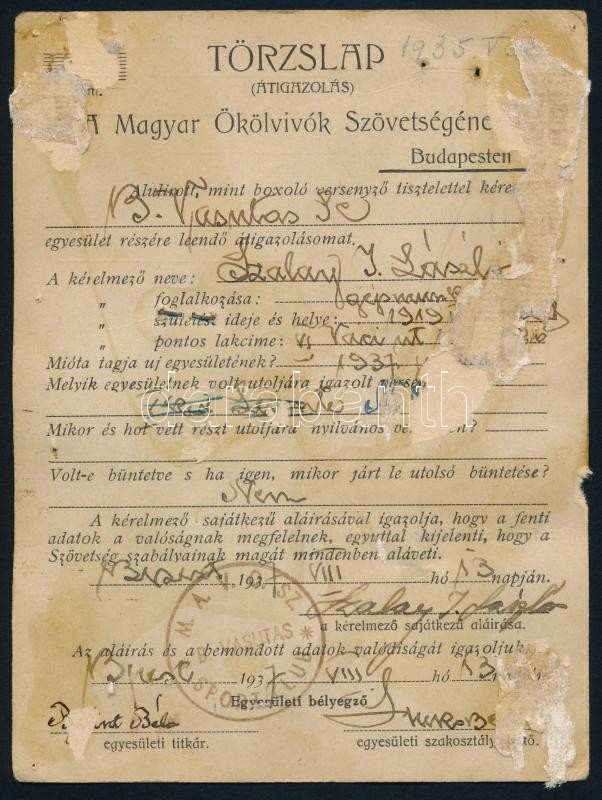 TÖRZSLAP 1935. V.
(ÁTIGAZOLÁS)
A Magyar Ökölvivók Szövetségéne
Budapesten
Alulirott, mint boxoló versenyző tisztelettel kére
B. Vasutas Sc
egyesület részére leendő átigazolásomat.
A kérelmező neve: Szalay J. László
„ foglalkozása: gépmunk
„ születési ideje és helye: 1919
„ pontos lakcime: VI Váci ut
Mióta tagja uj egyesületének? 1937
Melyik egyesületnek volt utoljára igazolt verse
Mikor és hol vett részt utoljára nyilvános ve en?
Volt-e büntetve s ha igen, mikor járt le utolsó büntetése?
Nem
A kérelmező sajátkezű aláirásával igazolja, hogy a fenti
adatok a valóságnak megfelelnek, egyuttal kijelenti, hogy a
Szövetség szabályainak magát mindenben aláveti.
Bpest, 1937 VIII hó 13 napján.
Szalay J. László
a kérelmező sajátkezű aláirása.
Az aláirás és a bemondott adatok valódiságát igazoljuk
Bpest 1937 VIII hó 13
M. Á. V. SZ.
B. VASUTAS
SPORT CLUB
Egyesületi bélyegző
Béla
egyesületi titkár. egyesületi szakosztály
darabanth